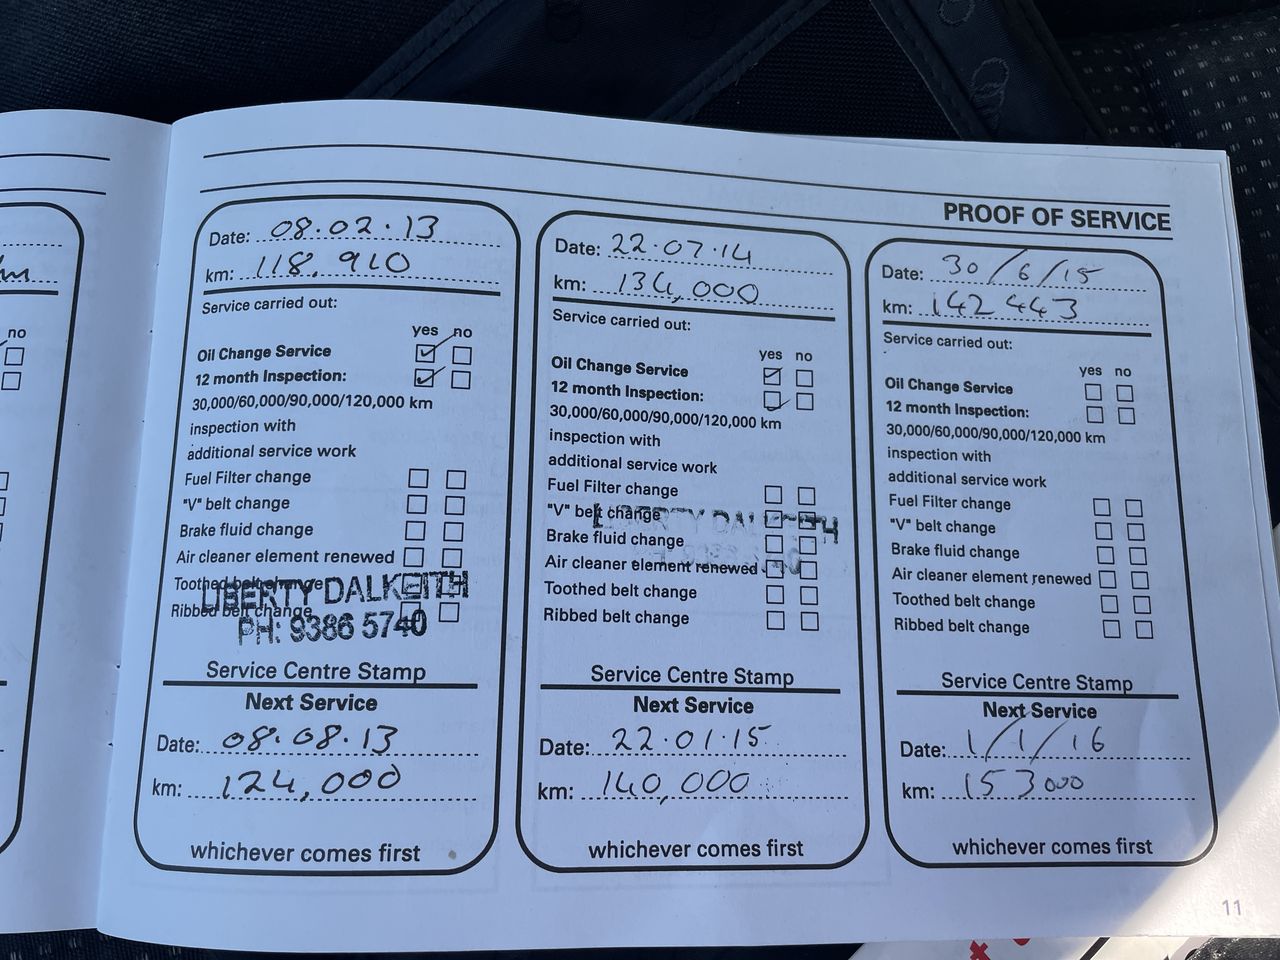 PROOF OF SERVICE
no
Date: 08.02.13
km: 118,910
Service carried out:
yes no
Oil Change Service
12 month Inspection:
30,000/60,000/90,000/120,000 km
inspection with
additional service work
Fuel Filter change
"V" belt change
Brake fluid change
Air cleaner element renewed
Toothed belt change
Ribbed belt change
LIBERTY DALKEITH
PH: 9386 5740
Service Centre Stamp
Next Service
Date: 08.08.13
km: 124,000
whichever comes first
Date: 22.07.14
km: 134,000
Service carried out:
yes no
Oil Change Service
12 month Inspection:
30,000/60,000/90,000/120,000 km
inspection with
additional service work
Fuel Filter change
"V" belt change
LIBERTY DALKEITH
Brake fluid change
Air cleaner element renewed
Toothed belt change
Ribbed belt change
Service Centre Stamp
Next Service
Date: 22.01.15
km: 140,000
whichever comes first
Date: 30/6/15
km: 142443
Service carried out:
yes no
Oil Change Service
12 month Inspection:
30,000/60,000/90,000/120,000 km
inspection with
additional service work
Fuel Filter change
"V" belt change
Brake fluid change
Air cleaner element renewed
Toothed belt change
Ribbed belt change
Service Centre Stamp
Next Service
Date: 1/1/16
km: 153000
whichever comes first
11